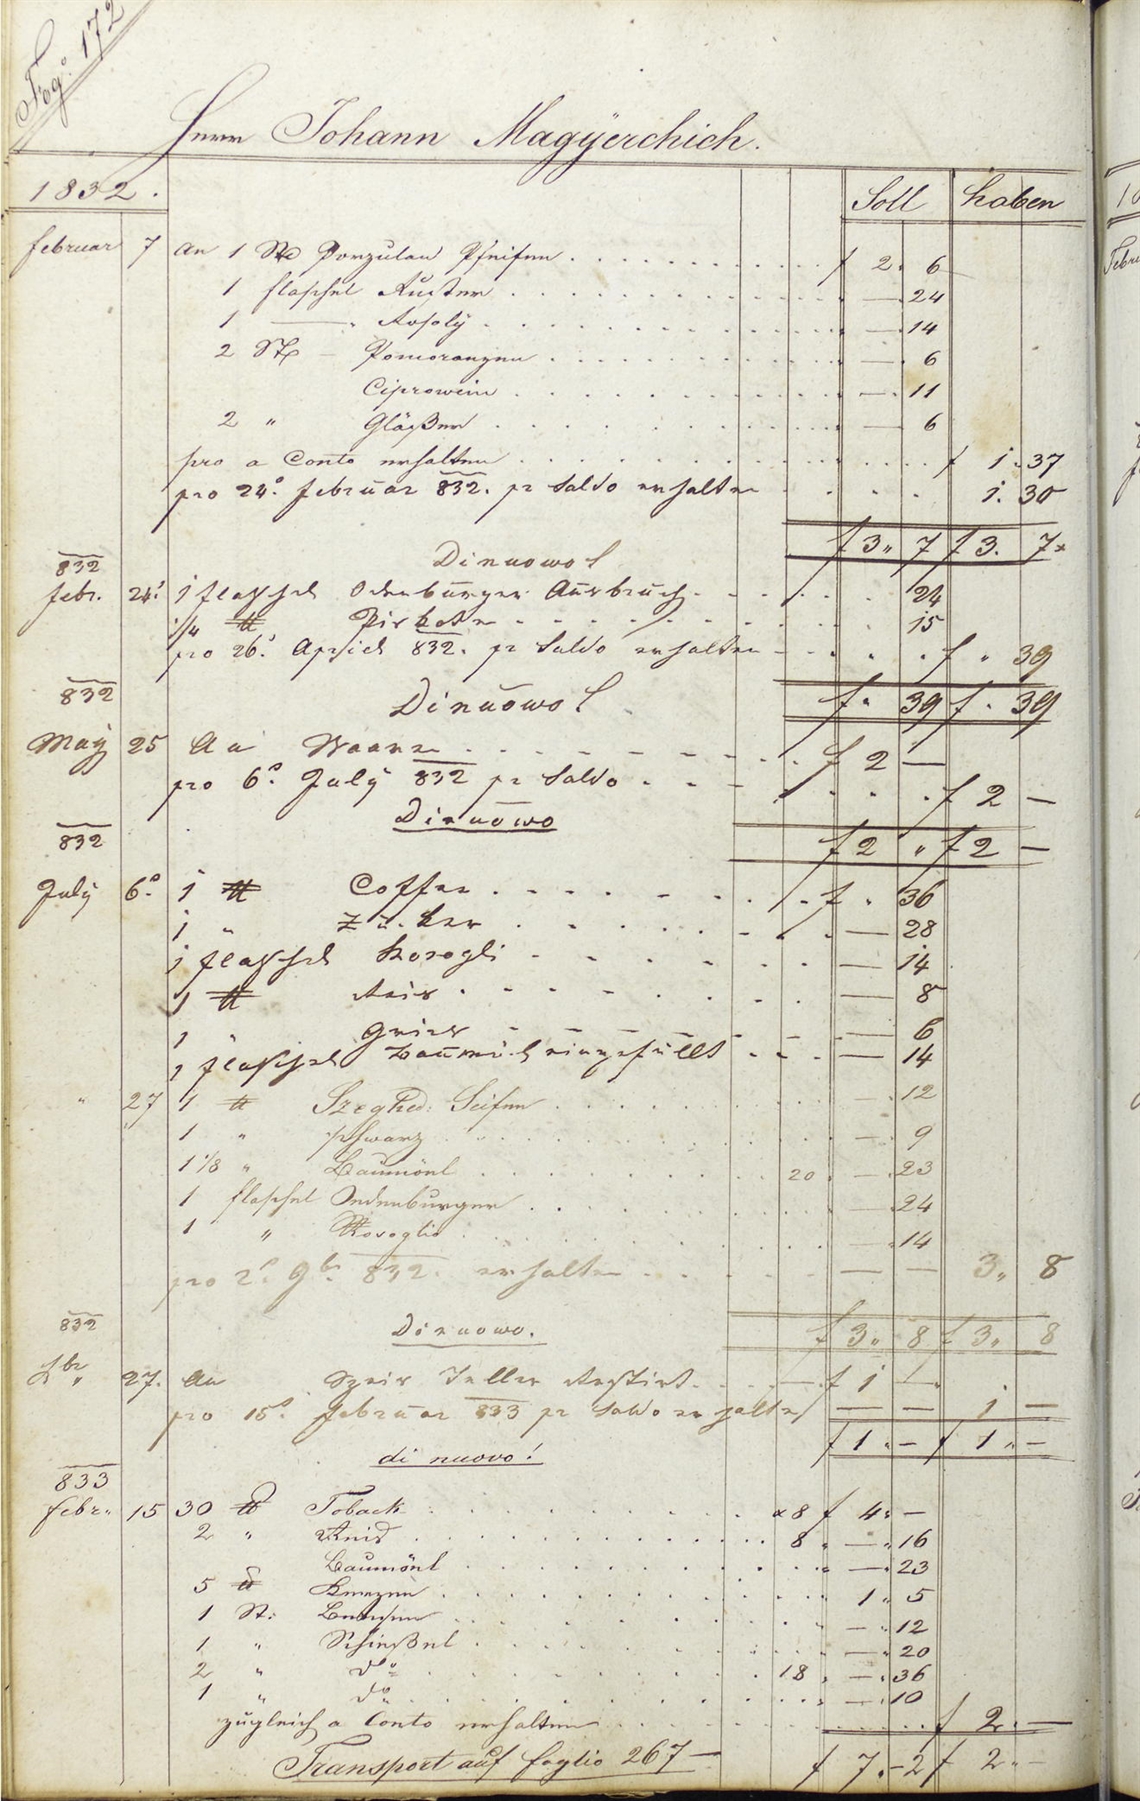 Fog: 172
Herr Johann Magÿerchich.
1832. Soll haben
februar 7 an 1 Stk Porzulan Pfeifen f 2. 6
1 flaschel Auster — 24
1 —— " Rosoly — 14
2 Stk — Pomoranzen — 6
Ciprowein — 11
2 " Gläßer — 6
pro a Conto erhalten f 1. 37
pro 24º februar 832. pr Saldo erhalten 1. 30
f 3 " 7 f 3. 7
832 Dinuowo
febr. 24: 1 flaschel Odenburger Ausbruch 24
1/4 ℔ 15
pro 26: Aprill 832. pr Saldo erhalten f " 39
f " 39 f " 39
832 Dinuowo
Maÿ 25 An Waare f 2 —
pro 6º Julÿ 832 pr Saldo f 2 —
Dinuowo
f 2 " f 2 —
832
Julÿ 6º 1 ℔ Coffee f " 36
1 " Zucker — 28
1 flaschel Rosogli — 14
1 ℔ Reis — 8
1 " Gries — 6
1 flaschel Baumöhl eingefüllt — 14
" 27 1 ℔ Szeghed: Seifen — 12
1 " schwarz — 9
1 1/8 " Baumöhl 20 — 23
1 flaschel Oedenburger — 24
1 " Rosoglio — 14
pro 2º 9br 832. erhalten — — 3 " 8
f 3 " 8 f 3 " 8
832 Dinuowo.
27. An Teller Restirt f 1 —
pro 15º februar 833 pr Saldo erhalten — — 1 —
f 1 " — f 1 " —
di nuovo!
833
febr. 15 30 ℔ Toback a 8 f 4 " —
2 " Reis 8 " — " 16
Baumöhl — " 23
5 ℔ 1 " 5
1 St: — " 12
1 " Schießel — " 20
2 " do 18 " — " 36
1 " do — " 10
zugleich a Conto erhalten f 2 " —
Transport auf foglio 267 — f 7 " 2 f 2 " —